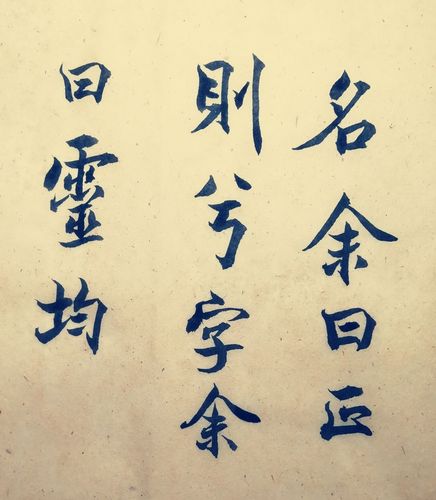 名余曰正
則兮字余
曰靈均